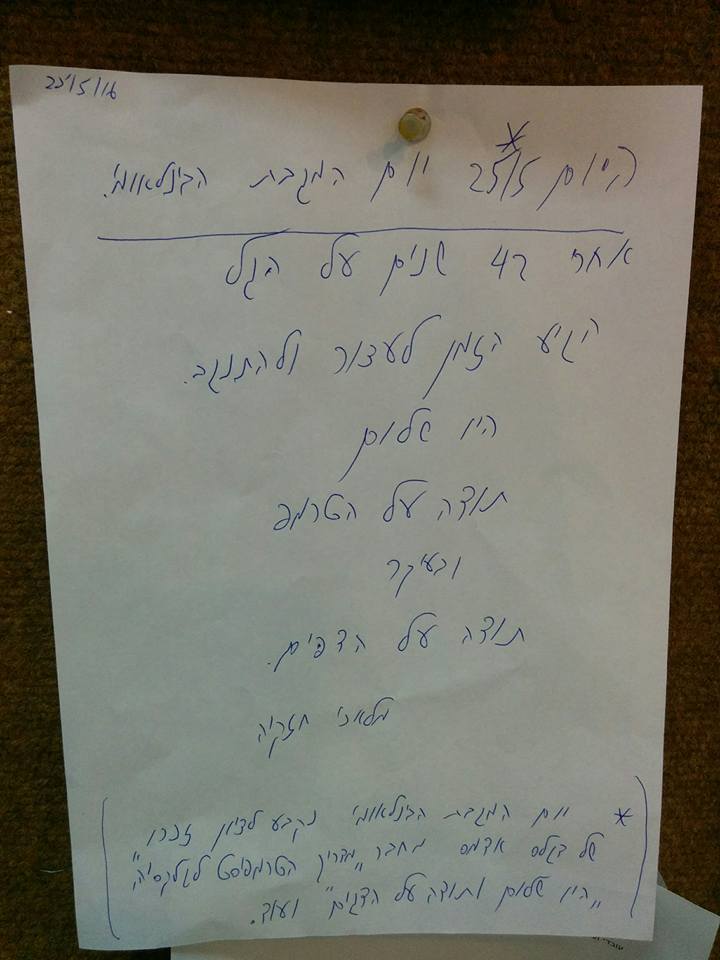 25/5/16
היום 25/5* יום המגבת הבינלאומי.
אחרי 42 שנים על הגל
הגיע הזמן לעצור ולהתנגב.
היו שלום
תודה על הטרמפ
ובעיקר
תודה על הדפים.
חזקיה
* יום המגבת הבינלאומי נקבע לציון זכרו
של דגלס אדמס מחבר "מדריך הטרמפיסט לגלקסיה",
"היו שלום ותודה על הדגים" ועוד.